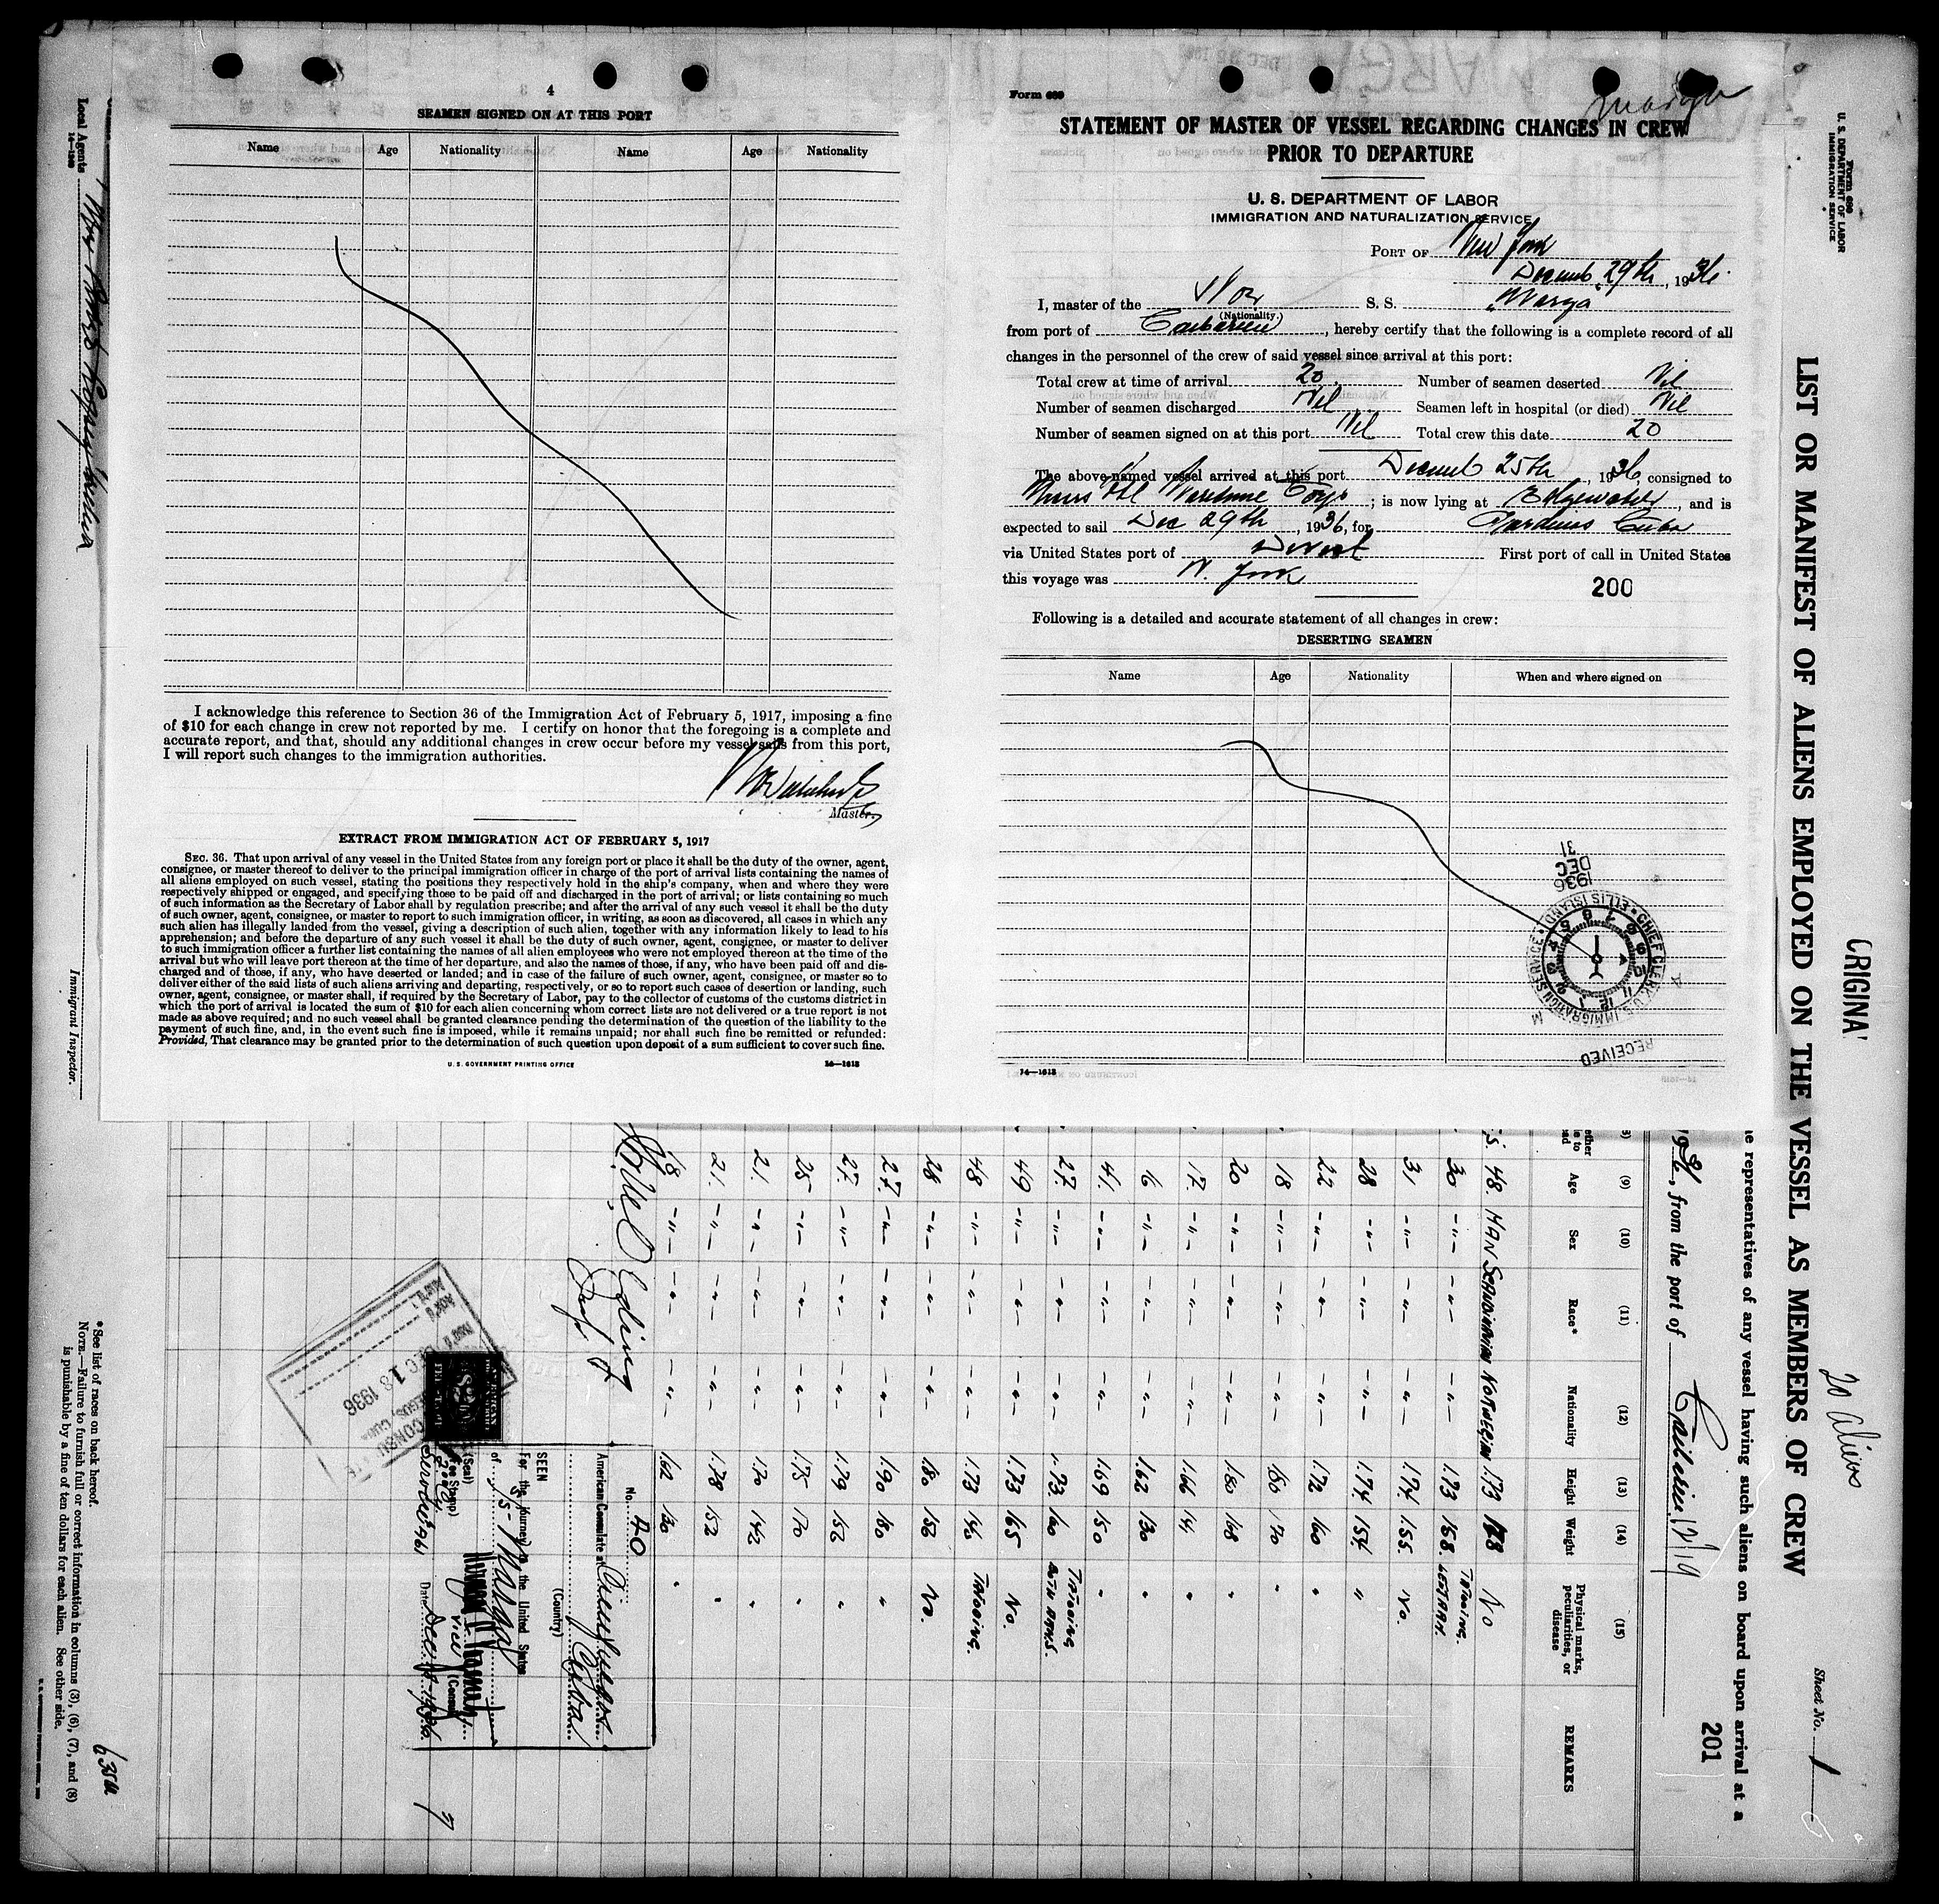 4
SEAMEN SIGNED ON AT THIS PORT
Name Age Nationality Name Age Nationality
I acknowledge this reference to Section 36 of the Immigration Act of February 5, 1917, imposing a fine
of $10 for each change in crew not reported by me. I certify on honor that the foregoing is a complete and
accurate report, and that, should any additional changes in crew occur before my vessel sails from this port,
I will report such changes to the immigration authorities.
Master.
EXTRACT FROM IMMIGRATION ACT OF FEBRUARY 5, 1917
SEC. 36. That upon arrival of any vessel in the United States from any foreign port or place it shall be the duty of the owner, agent,
consignee, or master thereof to deliver to the principal immigration officer in charge of the port of arrival lists containing the names of
all aliens employed on such vessel, stating the positions they respectively hold in the ship's company, when and where they were
respectively shipped or engaged, and specifying those to be paid off and discharged in the port of arrival; or lists containing so much
of such information as the Secretary of Labor shall by regulation prescribe; and after the arrival of any such vessel it shall be the duty
of such owner, agent, consignee, or master to report to such immigration officer, in writing, as soon as discovered, all cases in which any
such alien has illegally landed from the vessel, giving a description of such alien, together with any information likely to lead to his
apprehension; and before the departure of any such vessel it shall be the duty of such owner, agent, consignee, or master to deliver
to such immigration officer a further list containing the names of all alien employees who were not employed thereon at the time of the
arrival but who will leave port thereon at the time of her departure, and also the names of those, if any, who have been paid off and dis-
charged and of those, if any, who have deserted or landed; and in case of the failure of such owner, agent, consignee, or master so to
deliver either of the said lists of such aliens arriving and departing, respectively, or so to report such cases of desertion or landing, such
owner, agent, consignee, or master shall, if required by the Secretary of Labor, pay to the collector of customs of the customs district in
which the port of arrival is located the sum of $10 for each alien concerning whom correct lists are not delivered or a true report is not
made as above required; and no such vessel shall be granted clearance pending the determination of the question of the liability to the
payment of such fine, and, in the event such fine is imposed, while it remains unpaid; nor shall such fine be remitted or refunded:
Provided, That clearance may be granted prior to the determination of such question upon deposit of a sum sufficient to cover such fine.
U. S. GOVERNMENT PRINTING OFFICE 14—1613
Form 689
Marga
STATEMENT OF MASTER OF VESSEL REGARDING CHANGES IN CREW
PRIOR TO DEPARTURE
U. S. DEPARTMENT OF LABOR
IMMIGRATION AND NATURALIZATION SERVICE
PORT OF New York
Decemb. 29th, 1936.
I, master of the Nor S. S. Marga
(Nationality.)
from port of Caibarien, hereby certify that the following is a complete record of all
changes in the personnel of the crew of said vessel since arrival at this port:
Total crew at time of arrival 20 Number of seamen deserted Nil
Number of seamen discharged Nil Seamen left in hospital (or died) Nil
Number of seamen signed on at this port Nil Total crew this date 20
The above-named vessel arrived at this port Decemb 25th, 1936, consigned to
; is now lying at Edgewater, and is
expected to sail Dec 29th, 1936, for Cardenas Cuba
via United States port of Direct First port of call in United States
this voyage was N. York
200
Following is a detailed and accurate statement of all changes in crew:
DESERTING SEAMEN
Name Age Nationality When and where signed on
1936 DEC 31
CHIEF CLERK U.S. IMMIGRATION SERVICE ELLIS ISLAND
RECEIVED
14—1613
Form 689
U. S. DEPARTMENT OF LABOR
IMMIGRATION SERVICE
LIST OR MANIFEST OF ALIENS EMPLOYED ON THE VESSEL AS MEMBERS OF CREW
ORIGINA
20 Aliens
Sheet No. 1
e representatives of any vessel having such aliens on board upon arrival at a
1936, from the port of Caibarien 12/19
201
(9) (10) (11) (12) (13) (14) (15)
Age Sex Race* Nationality Height Weight Physical marks, peculiarities, or disease REMARKS
48. MAN SCANDINAVIAN NORWEGIAN 1.73 No
30 -"- -"- -"- 1.73 158. TATOOING. LEFT ARM.
31 -"- -"- -"- 1.74 155. No.
28 -"- -"- -"- 1.74. 154. "
22 -"- -"- -"- 1.72 160 "
18 -"- -"- -"- 1.80 170 "
20 -"- -"- -"- 1.80 148 "
17. -"- -"- -"- 1.66 141 "
16 -"- -"- -"- 1.62 130 "
41 -"- -"- -"- 1.69 150 "
27. -"- -"- -"- 1.73 160 TATOOING BOTH ARMS.
49 -"- -"- -"- 1.73 165 No.
48 -"- -"- -"- 1.73 145 TATOOING.
28 -"- -"- -"- 1.80 156 No.
27. -"- -"- -"- 1.90 180 "
27. -"- -"- -"- 1.79 152 "
25 -"- -"- -"- 1.75 170 "
21. -"- -"- -"- 1.70 142 "
21. -"- -"- -"- 1.78 152 "
18 -"- -"- -"- 1.62 130 "
No. 40
American Consulate at Cienfuegos Cuba
(Country)
SEEN
For the journey to the United States
of S/S "Marga"
(Seal)
(Fee Stamp)
Vice (Consul)
Service No. 961 Date Dec. 18, 1936.
AMERICAN CONSULATE
DEC 18 1936
CIENFUEGOS, CUBA
AMERICAN CONSULAR SERVICE
$2
*See list of races on back hereof.
NOTE.—Failure to furnish full or correct information in columns (3), (6), (7), and (8)
is punishable by a fine of ten dollars for each alien. See other side.
Immigrant Inspector.
Local Agents
14—1240